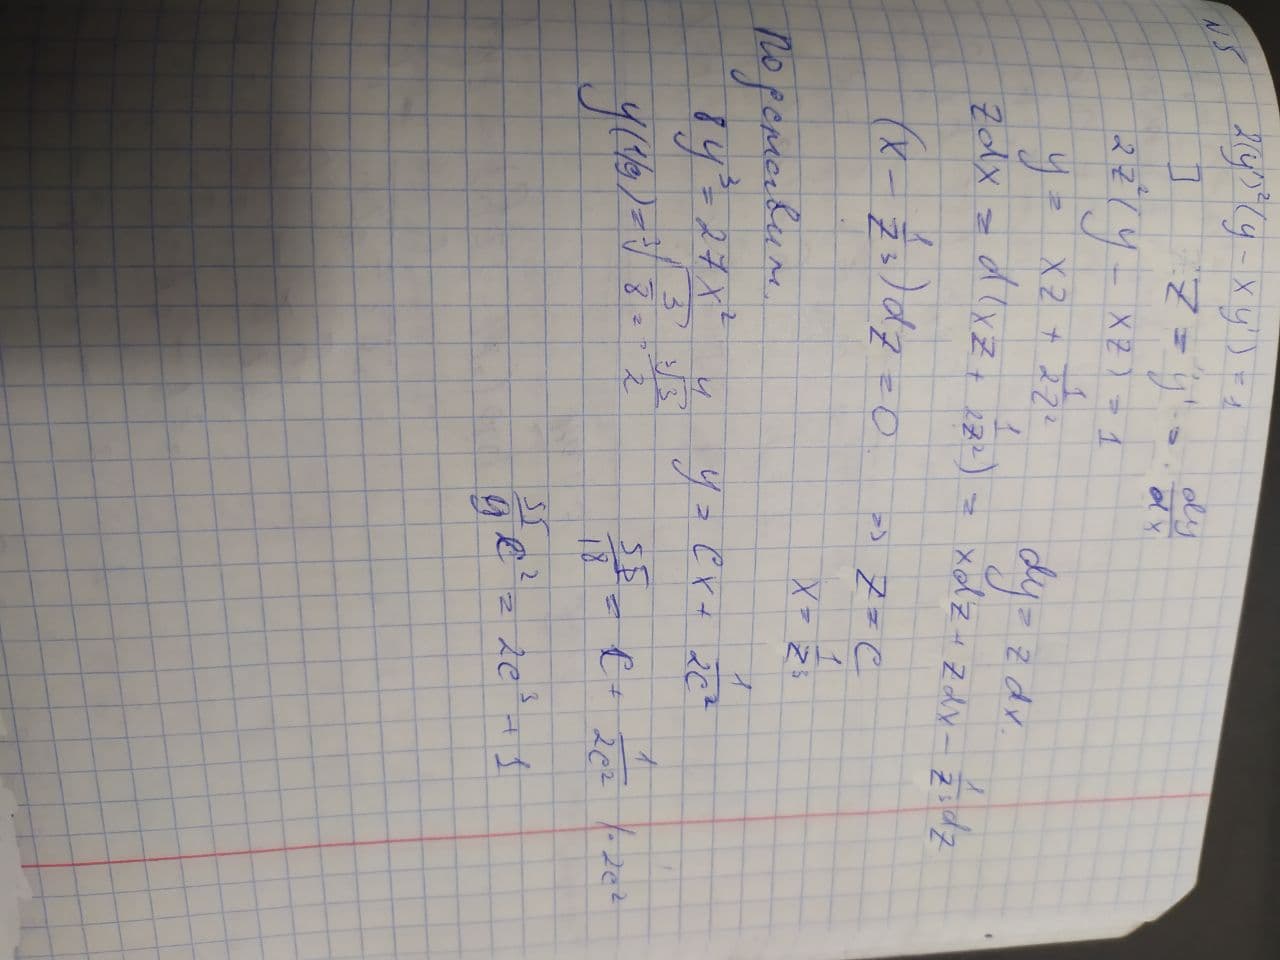 N5 2(y')²(y - xy') = 1
] Z = y' = dy/dx
2z²(y - xz) = 1
y = xz + 1/2z² dy = z dx.
zdx = d(xz + 1/2z²) = xdz + zdx - 1/z³ dz
(x - 1/z³)dz = 0. => z = c
x = 1/z³
Подставим.
8y³ = 27x² y = cx + 1/2c²
y(1/9) = ³√3/8 = ³√3/2
55/18 = c + 1/2c² |· 2c²
55/9 c² = 2c³ + 1